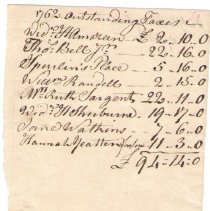 1762 Outstanding Taxes
Wid.ᵒ £2-10-0
Thoˢ Bell Jʳ 22-16-0
Spurlin's Place - 5-16-0
Wᵐ Randell - 2-15-0
Mʳˢ Ruth Sargent 22-11-0
Wid.ᵒ Sherburne 19-17-0
Jane Watkins - 7-6-0
Hannah Yeatten 11-3-0
£94-14-0